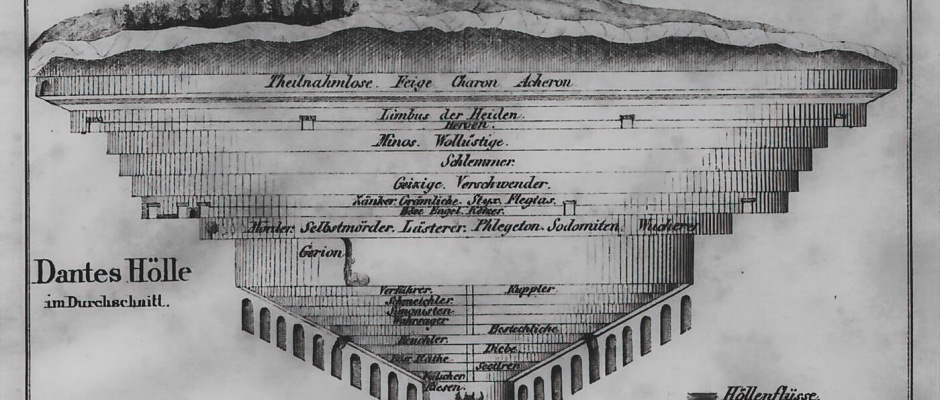 Theilnahmlose. Feige Charon Acheron
Limbus der Heiden.
Heroen.
Minos. Wollüstige.
Schlemmer.
Geizige. Verschwender.
Zänker. Grämliche. Styx. Flegias.
Böse Engel. Ketzer.
Mörder. Selbstmörder. Lästerer. Phlegeton. Sodomiten. Wucherer
Gerion
Dantes Hölle
im Durchschnitt.
Verführer. Kuppler.
Schmeichler.
Simonisten.
Wahrsager
Bestechliche
Heuchler.
Diebe.
Böse Räthe
Fälscher
Riesen.
Höllenflüsse.